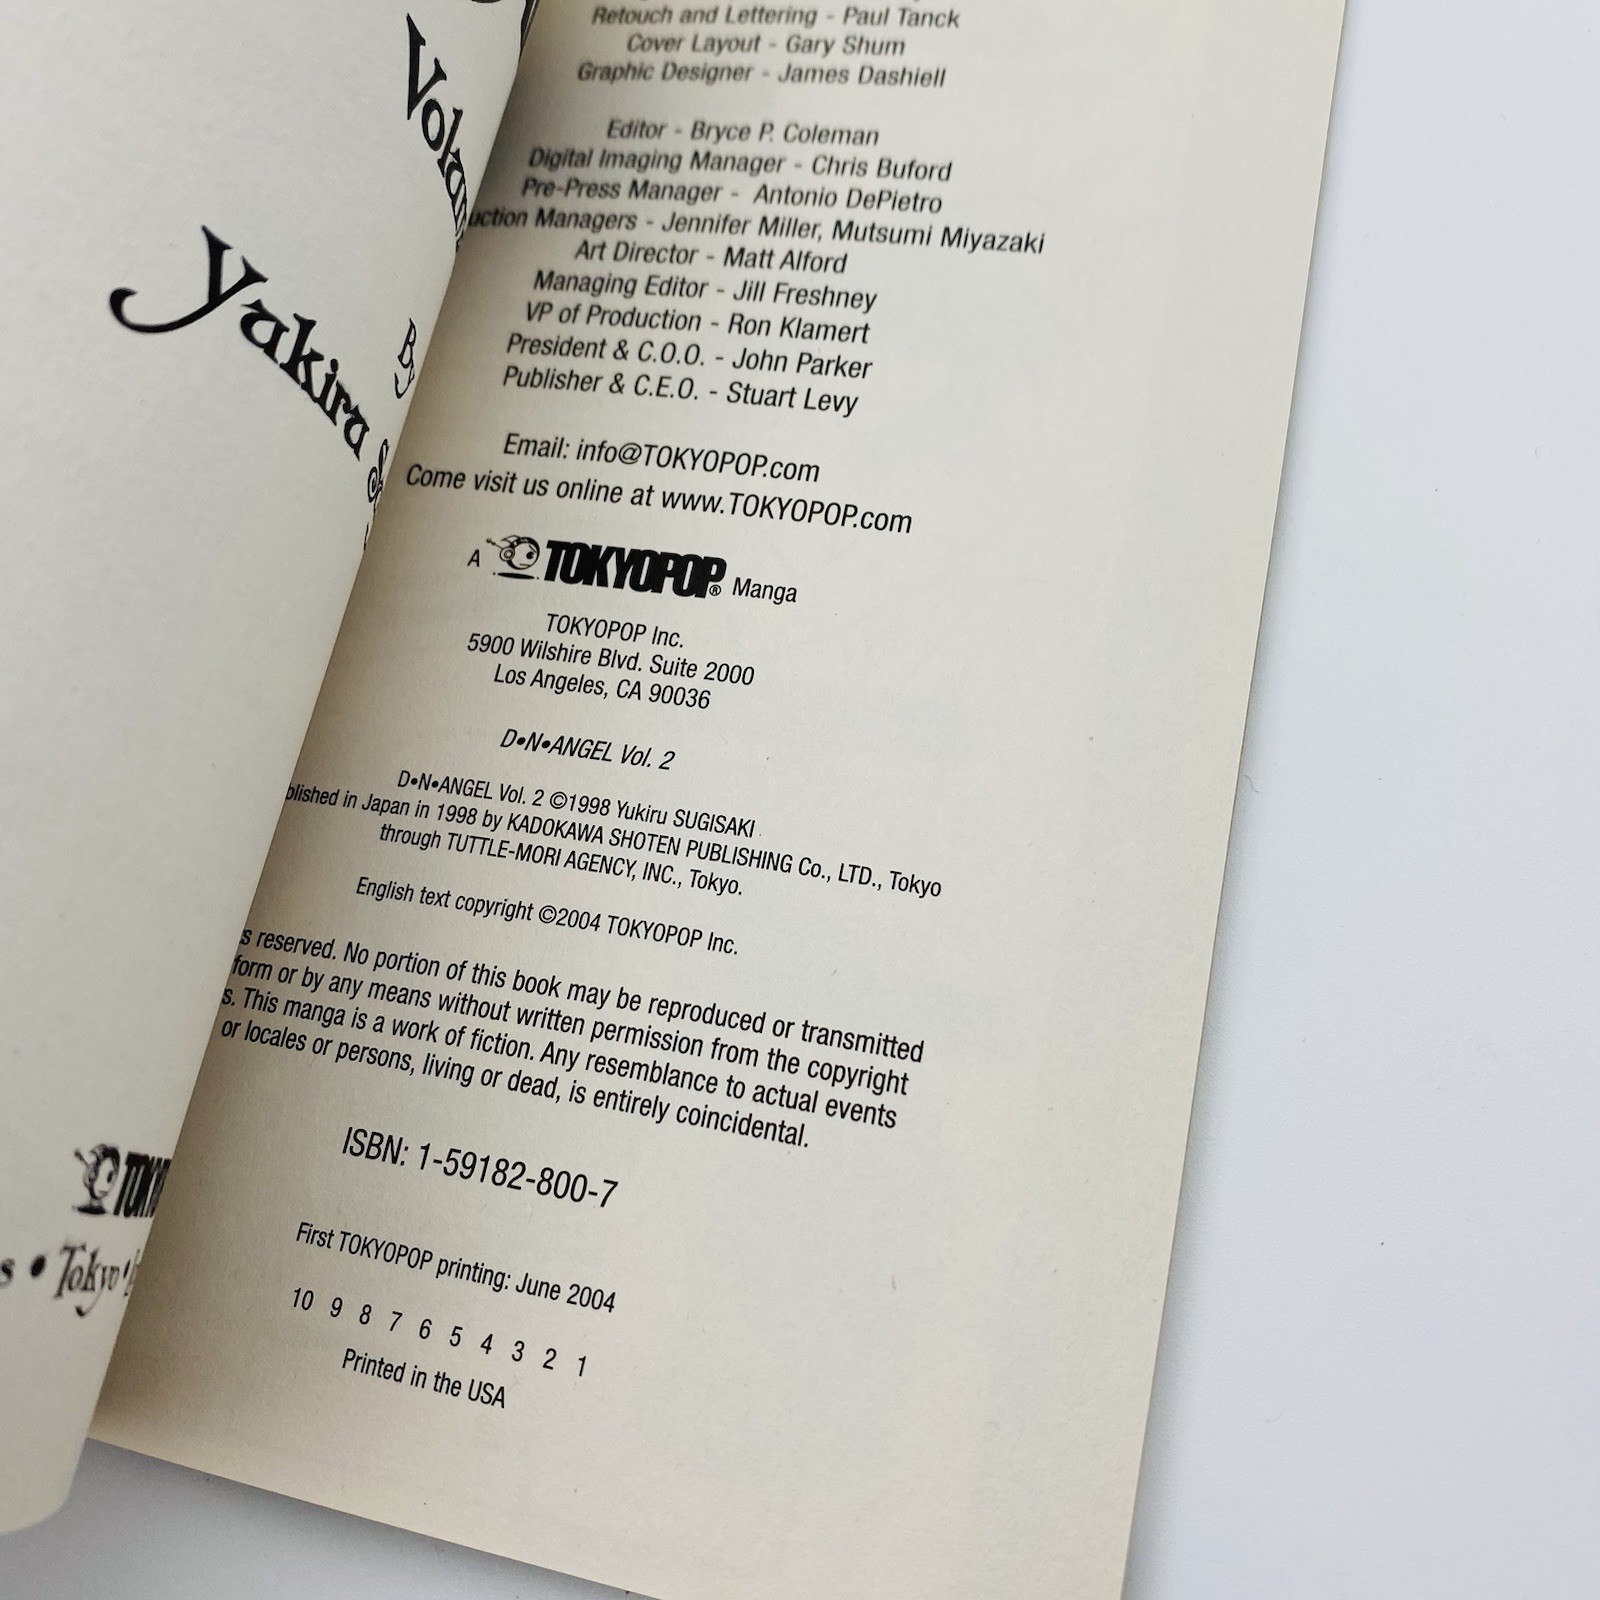 Volum
By
Yukiru
TOKYO
s • Tokyo
Retouch and Lettering - Paul Tanck
Cover Layout - Gary Shum
Graphic Designer - James Dashiell
Editor - Bryce P. Coleman
Digital Imaging Manager - Chris Buford
Pre-Press Manager - Antonio DePietro
uction Managers - Jennifer Miller, Mutsumi Miyazaki
Art Director - Matt Alford
Managing Editor - Jill Freshney
VP of Production - Ron Klamert
President & C.O.O. - John Parker
Publisher & C.E.O. - Stuart Levy
Email: info@TOKYOPOP.com
Come visit us online at www.TOKYOPOP.com
A TOKYOPOP® Manga
TOKYOPOP Inc.
5900 Wilshire Blvd. Suite 2000
Los Angeles, CA 90036
D•N•ANGEL Vol. 2
D•N•ANGEL Vol. 2 ©1998 Yukiru SUGISAKI
blished in Japan in 1998 by KADOKAWA SHOTEN PUBLISHING Co., LTD., Tokyo
through TUTTLE-MORI AGENCY, INC., Tokyo.
English text copyright ©2004 TOKYOPOP Inc.
s reserved. No portion of this book may be reproduced or transmitted
form or by any means without written permission from the copyright
s. This manga is a work of fiction. Any resemblance to actual events
or locales or persons, living or dead, is entirely coincidental.
ISBN: 1-59182-800-7
First TOKYOPOP printing: June 2004
10 9 8 7 6 5 4 3 2 1
Printed in the USA